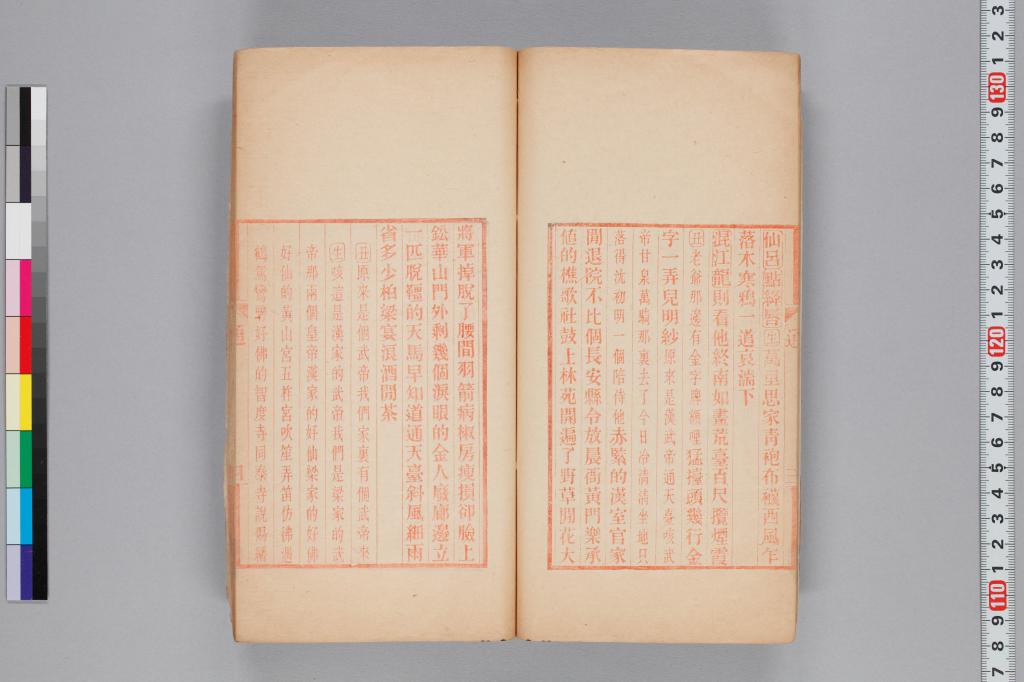 仙呂點絳唇生萬里思家青袍布襪西風乍
落木寒鴉一道哀湍下
混江龍則看他終南如畫荒臺百尺攬煙霞
丑老爺那邊有金字牌額哩猛擡頭幾行金
字一弄兒明紗原來是漢武帝通天臺咳武
帝甘泉萬騎那裏去了今日冷清清坐地只
落得沈初明一個陪侍他赤緊的漢室官家
閒退院不比個長安縣令放晨衙黃門樂承
値的樵歌社鼓上林苑開遍了野草閒花大
將軍掉脫了腰間羽箭病椒房瘦損卻臉上
鉛華山門外剩幾個淚眼的金人廠廊邊立
一匹脫韁的天馬早知道通天臺斜風細雨
省多少柏梁宴浪酒閒茶
丑原來是個武帝我們家裏有個武帝來
生咳這是漢家的武帝我們是梁家的武
帝那兩個皇帝漢家的好仙梁家的好佛
好仙的黃山宮五柞宮吹笙弄笛仿彿遇
鶴駕鸞驂好佛的智度寺同泰寺說
通
三
通
四
3
2
1
130
9
8
7
6
5
4
3
2
1
120
9
8
7
6
5
4
3
2
1
110
9
8
7